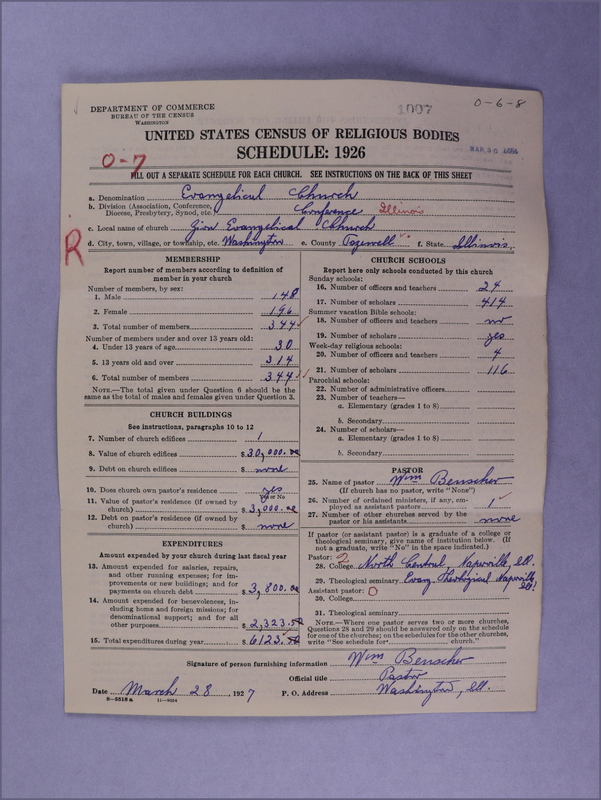 DEPARTMENT OF COMMERCE
BUREAU OF THE CENSUS
WASHINGTON
1007
0-6-8
UNITED STATES CENSUS OF RELIGIOUS BODIES
SCHEDULE: 1926
0-7
FILL OUT A SEPARATE SCHEDULE FOR EACH CHURCH. SEE INSTRUCTIONS ON THE BACK OF THIS SHEET
a. Denomination Evangelical Church
b. Division (Association, Conference, Diocese, Presbytery, Synod, etc. Conference Illinois
c. Local name of church Zion Evangelical Church
R
d. City, town, village, or township, etc. Washington e. County Tazewell f. State Illinois
MEMBERSHIP
Report number of members according to definition of member in your church
Number of members, by sex:
1. Male 148
2. Female 196
3. Total number of members 344
Number of members under and over 13 years old:
4. Under 13 years of age 30
5. 13 years old and over 314
6. Total number of members 344
NOTE.—The total given under Question 6 should be the
same as the total of males and females given under Question 3.
CHURCH BUILDINGS
See instructions, paragraphs 10 to 12
7. Number of church edifices 1
8. Value of church edifices $30,000.00
9. Debt on church edifices $ none
10. Does church own pastor's residence yes
Yes or No
11. Value of pastor's residence (if owned by
church) $3,000.00
12. Debt on pastor's residence (if owned by
church) $ none
EXPENDITURES
Amount expended by your church during last fiscal year
13. Amount expended for salaries, repairs,
and other running expenses; for im-
provements or new buildings; and for
payments on church debt $3,800.00
14. Amount expended for benevolences, in-
cluding home and foreign missions; for
denominational support; and for all
other purposes $2,323.50
15. Total expenditures during year $6123.50
CHURCH SCHOOLS
Report here only schools conducted by this church
Sunday schools:
16. Number of officers and teachers 24
17. Number of scholars 414
Summer vacation Bible schools:
18. Number of officers and teachers no
19. Number of scholars yes
Week-day religious schools:
20. Number of officers and teachers 4
21. Number of scholars 116
Parochial schools:
22. Number of administrative officers
23. Number of teachers—
a. Elementary (grades 1 to 8)
b. Secondary
24. Number of scholars—
a. Elementary (grades 1 to 8)
b. Secondary
PASTOR
25. Name of pastor Wm Benscher
(If church has no pastor, write "None")
26. Number of ordained ministers, if any, em-
ployed as assistant pastors 1
27. Number of other churches served by the
pastor or his assistants none
If pastor (or assistant pastor) is a graduate of a college or
theological seminary, give name of institution below. (If
not a graduate, write "No" in the space indicated.)
Pastor: 2
28. College North Central, Naperville, Ill.
29. Theological seminary Evang. Theological Naperville, Ill.
Assistant pastor: 0
30. College
31. Theological seminary
NOTE.—Where one pastor serves two or more churches,
Questions 28 and 29 should be answered only on the schedule
for one of the churches; on the schedules for the other churches,
write "See schedule for church."
Signature of person furnishing information Wm Benscher
Official title Pastor
Date March 28, 1927 P. O. Address Washington, Ill.
8—5518 a 11—9034